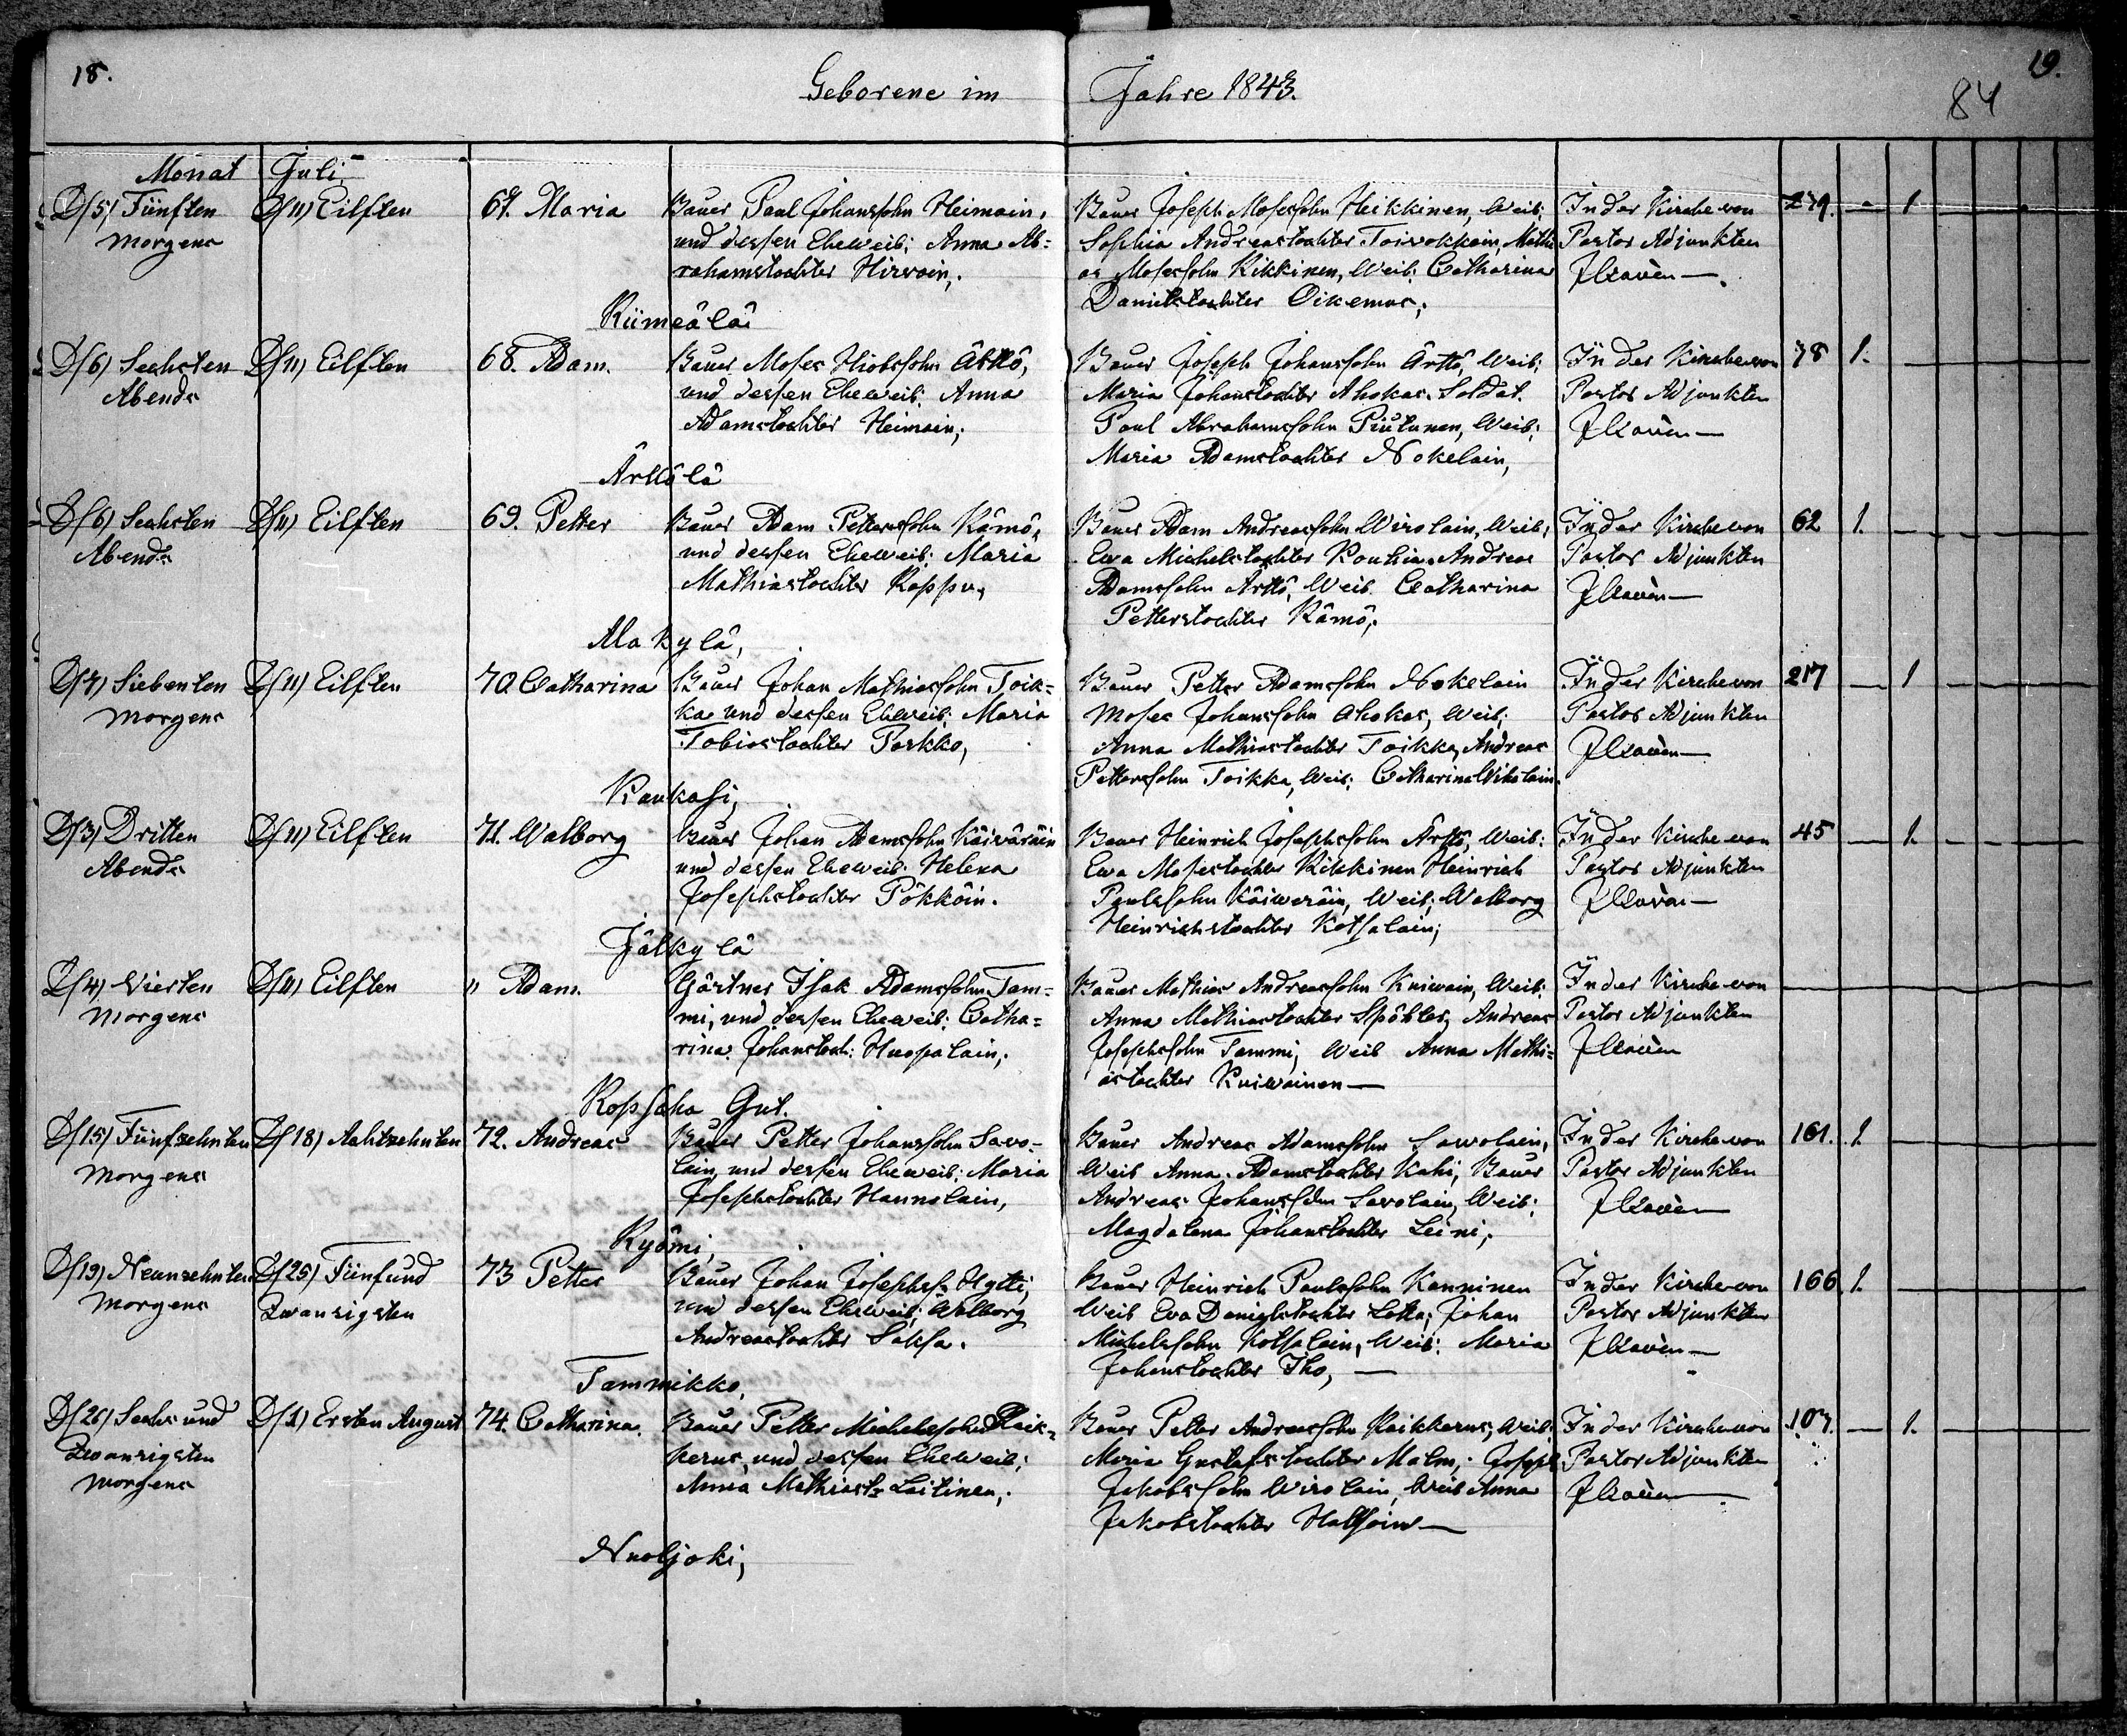 18.
Geborene im Jahre 1843.
19.
84
Monat Juli,
D/5) Fünften Morgens
D/11) Eilften
67. Maria
Bauer Paul Johanssohn Heimain,
und dessen Eheweib; Anna Ab=
rahamstochter Hirvoin,
Bauer Joseph Mosessohn Heikkinen, Weib;
Sophia Andreastochter Toivokkain, Mathi
as Mosessohn Kikkinen, Weib; Catharina
Danielstochter Oikemus,
In der Kirche von
Pastor Adjunkten
279. — 1
D/6) Sechsten
Abends
D/11) Eilften
68. Adam.
Bauer Moses Hiobssohn Ärttö,
und dessen Eheweib; Anna
Adamstochter Heimain;
Bauer Joseph Johanssohn Ärttö, Weib;
Maria Johanstochter Ahokas. Soldat.
Paul Abrahamssohn Piutunen, Weib;
Maria Adamstochter Nokelain,
In der Kirche von
Pastor Adjunkten
78 1.
Ärttölä
D/6) Sechsten
Abends
D/11) Eilften
69. Petter
Bauer Adam Petterssohn Kämö,
und dessen Eheweib; Maria
Mathiastochter Roppu,
Bauer Adam Andreassohn Wirolain, Weib;
Ewa Michelstochter Kouhia. Andreas
Adamssohn Ärttö, Weib. Catharina
Petterstochter Kämö,
In der Kirche von
Pastor Adjunkten
62 1.
Alakylä,
D/7) Siebenten
Morgens
D/11) Eilften
70. Catharina
Bauer Johan Mathiassohn Toik=
ka und dessen Eheweib; Maria
Tobiastochter Porkko,
Bauer Petter Adamssohn Nokelain
Moses Johanssohn Ahokas, Weib;
Anna Mathiastochter Toikka, Andreas
Petterssohn Toikka, Weib; Catharina
In der Kirche von
Pastor Adjunkten
217 — 1
Kaukasi,
D/3) Dritten
Abends
D/11) Eilften
71. Walborg
Bauer Johan Adamssohn Käiväräin
und dessen Eheweib; Helena
Josephstochter Pökköin.
Bauer Heinrich Josephssohn Ärttö, Weib;
Ewa Mosestochter Kikkinen Heinrich
Paulssohn Käiweräin, Weib; Walborg
Heinrichstochter Kotsalain;
In der Kirche von
Pastor Adjunkten
45 — 1.
Jälkylä
D/4) Vierten
Morgens
D/11) Eilften
" Adam.
Gärtner Isak Adamssohn Tam=
mi, und dessen Eheweib; Catha=
rina Johanstoch: Huopalain,
Bauer Mathias Andreassohn Kuiwain, Weib;
Anna Mathiastochter Andreas
Josephssohn Tammi, Weib Anna Mathi=
astochter Kuiwainen —
In der Kirche von
Pastor Adjunkten
Kopsaha Gut.
D/15) Fünfzehnten
Morgens
D/18) Achtzehnten
72. Andreas
Bauer Petter Johanssohn Savo=
lain, und dessen Eheweib; Maria
Josephstochter Hannolain,
Bauer Andreas Adamssohn Sawolain,
Weib Anna. Adamstochter Kahi, Bauer
Andreas Johanssohn Savolain, Weib;
Magdalena Johanstochter Leini,
In der Kirche von
Pastor Adjunkten
161. 1.
Kyömi,
D/19) Neunzehnten
Morgens
D/25) Fünfund
Zwanzigsten
73 Petter
Bauer Johan Josephss. Hytti,
und dessen Eheweib; Walborg
Andreastochter Saksa.
Bauer Heinrich Paulssohn Kanninen
Weib Eva Danielstochter Lotta; Johan
Michelssohn Kotsalain, Weib; Maria
Johanstochter Iho, —
In der Kirche von
Pastor Adjunkten
166 1.
Tammikko,
D/26) Sechs und
Zwanzigsten
Morgens
D/1) Ersten August
74. Catharina.
Bauer Petter Michelssohn Raik=
kerus, und dessen Eheweib;
Anna Mathiast. Laitinen,
Bauer Petter Andreassohn Raikkerus, Weib.
Maria Gustafstochter Malm, Joseph
Jakobssohn Wirolain, Weib Anna
Jakobstochter —
In der Kirche von
Pastor Adjunkten
107. — 1.
Nuoljoki,